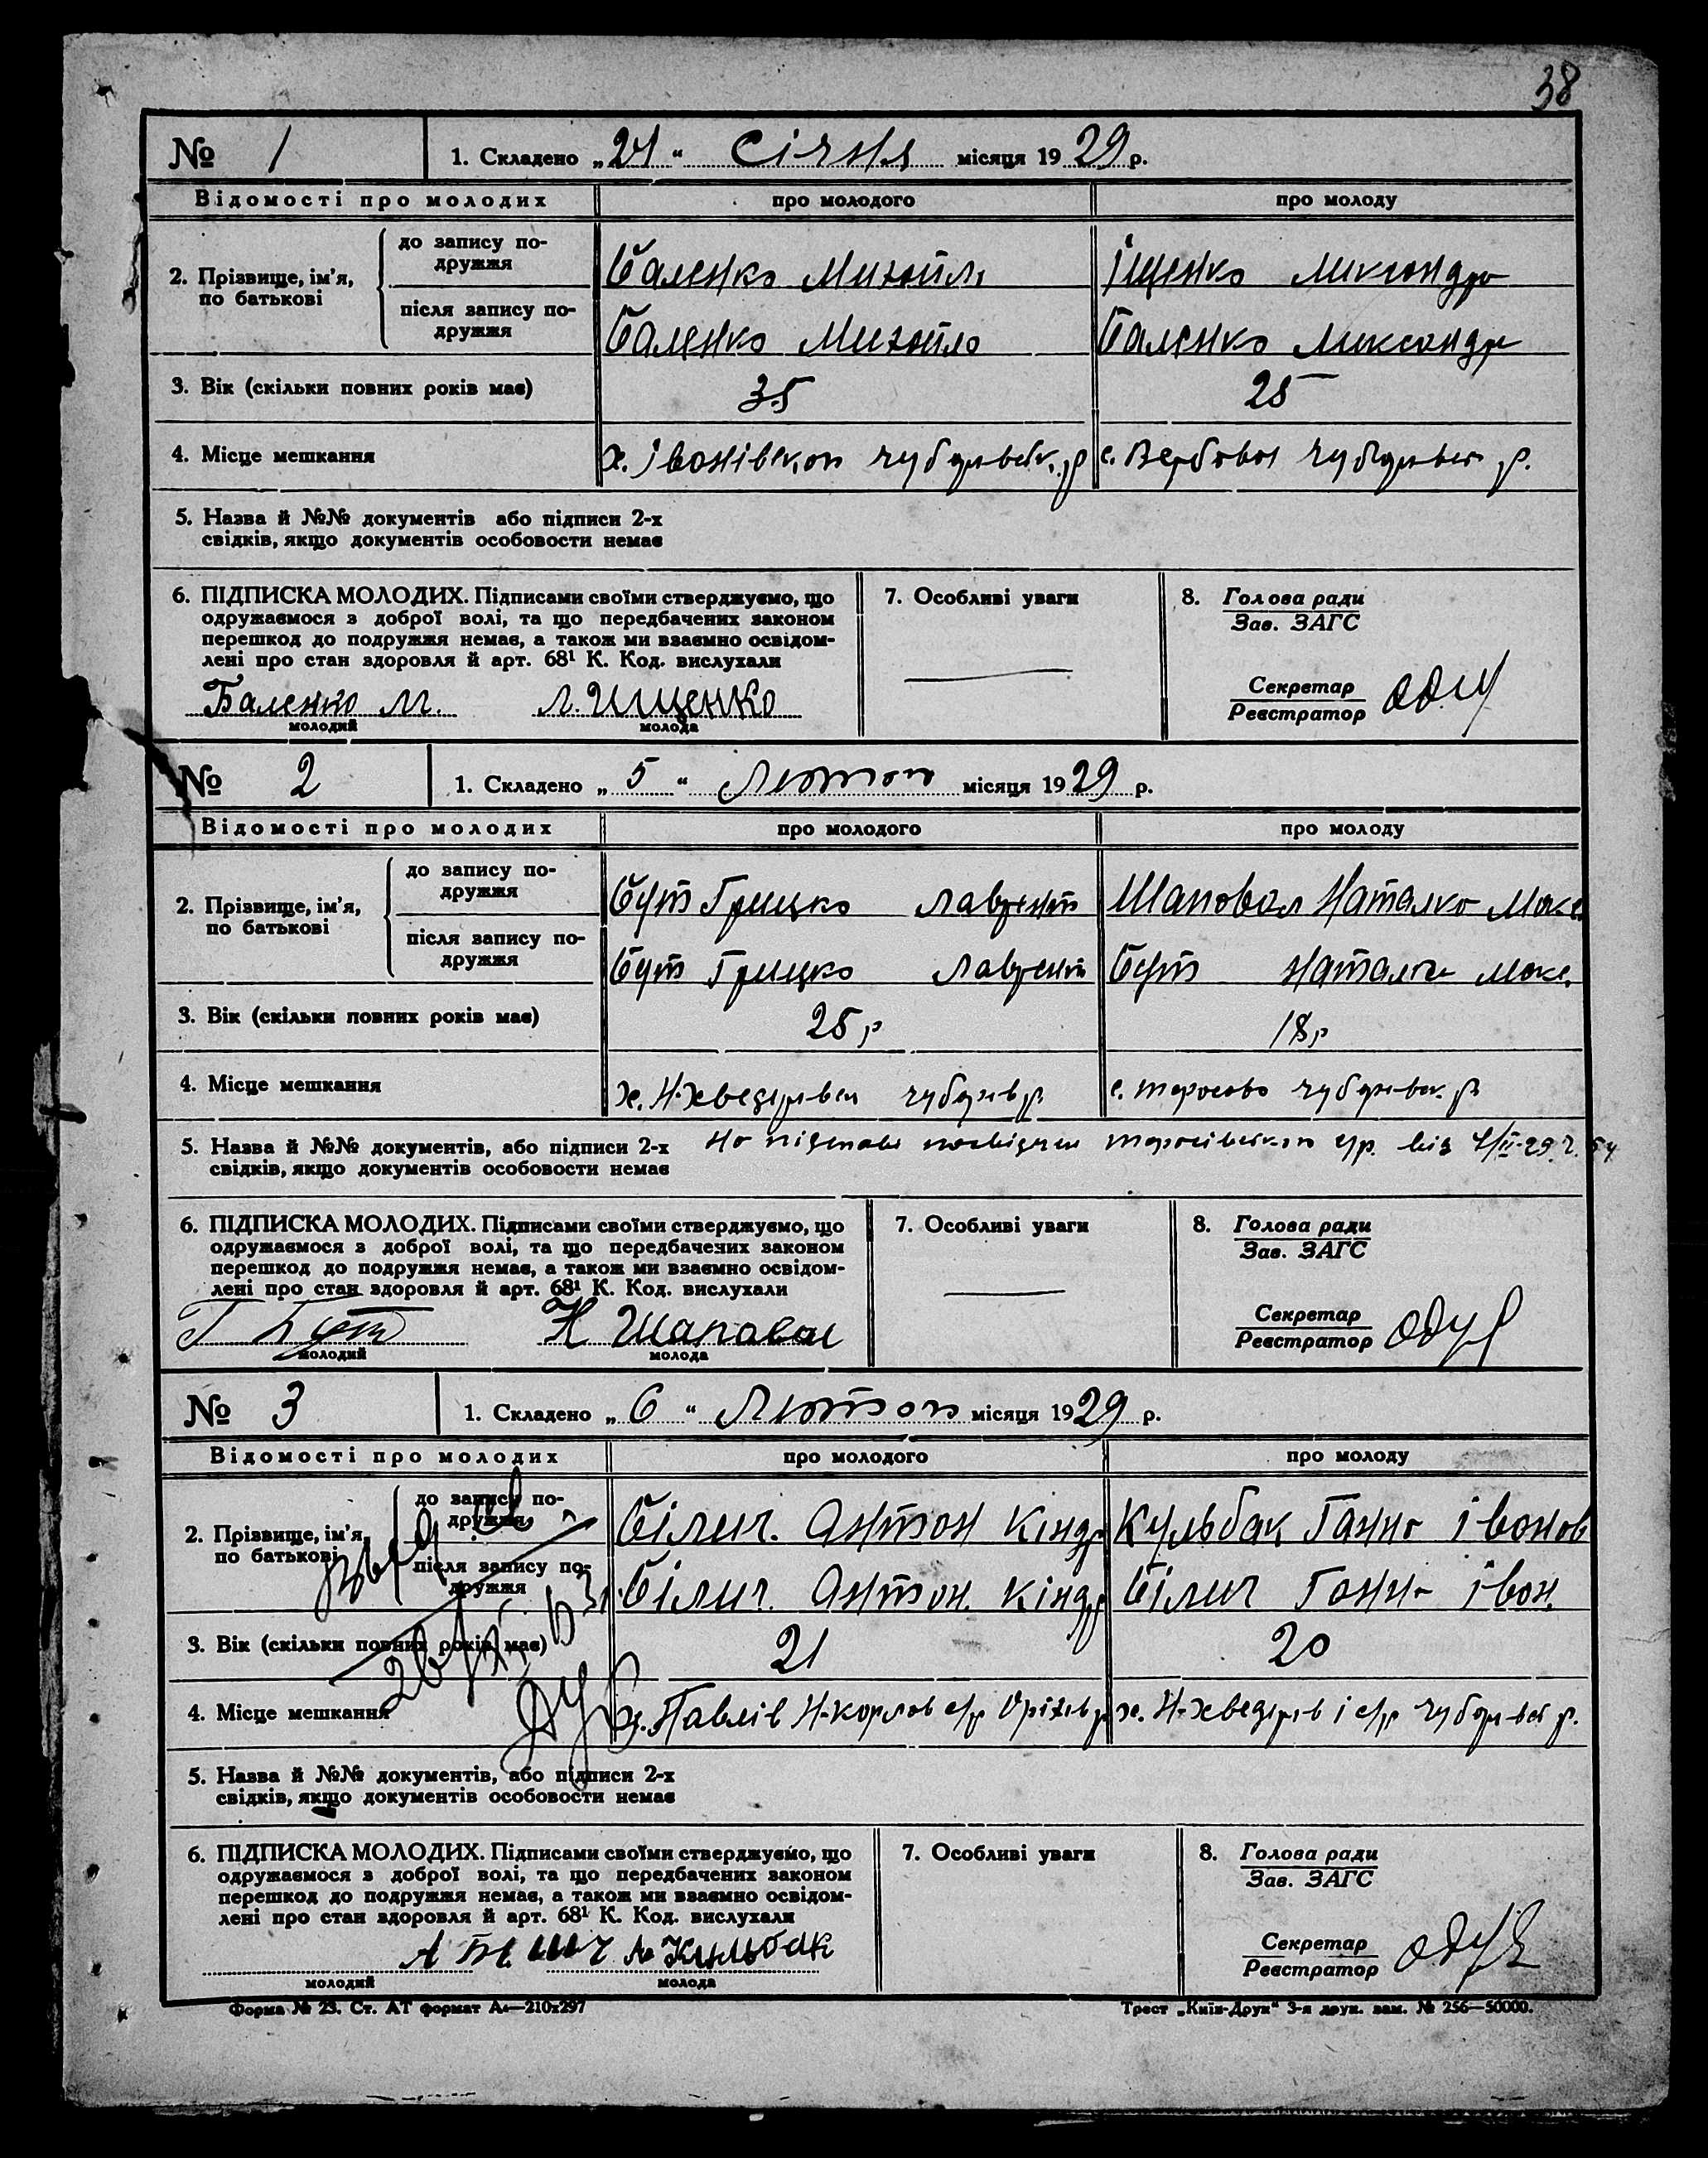 38
№ 1 1. Складено „24“ Січня місяця 1929 р.
Відомості про молодих про молодого про молоду
2. Прізвище, ім'я, по батькові
до запису подружжя Баленко Михайло Іщенко Ликсандра
після запису подружжя Баленко Михайло Баленко Ликсандр
3. Вік (скільки повних років має) 35 25
4. Місце мешкання х. Іванівекои Чубарівськ. р с. Вербова Чубарівськ р.
5. Назва й №№ документів або підписи 2-х
свідків, якщо документів особовости немає
6. ПІДПИСКА МОЛОДИХ. Підписами своїми стверджуємо, що 7. Особливі уваги 8. Голова ради
одружаємося з доброї волі, та що передбачених законом Зав. ЗАГС
перешкод до подружжя немає, а також ми взаємно освідом-
лені про стан здоровля й арт. 68¹ К. Код. вислухали
Секретар
Баленко М. Л. Ищенко Реєстратор
молодий молода
№ 2 1. Складено „5“ Лютого місяця 1929 р.
Відомості про молодих про молодого про молоду
2. Прізвище, ім'я, по батькові
до запису подружжя Бут Грицко Лаврент Шаповал Наталка Макс
після запису подружжя Бут Грицко Лаврент Бут Наталка Макс.
3. Вік (скільки повних років має) 25 р 18 р
4. Місце мешкання х. Н-Хведорівка Чубарів р. с. Торосово Чубарівськ. р.
5. Назва й №№ документів, або підписи 2-х На підставі посвідки Торосівського с/р. від 4/II-29 р. ч. 54
свідків, якщо документів особовости немає
6. ПІДПИСКА МОЛОДИХ. Підписами своїми стверджуємо, що 7. Особливі уваги 8. Голова ради
одружаємося з доброї волі, та що передбачених законом Зав. ЗАГС
перешкод до подружжя немає, а також ми взаємно освідом-
лені про стан здоровля й арт. 68¹ К. Код. вислухали
Секретар
Г Бут Н Шаповал Реєстратор
молодий молода
№ 3 1. Складено „6“ Лютого місяця 1929 р.
Відомості про молодих про молодого про молоду
2. Прізвище, ім'я, по батькові
до запису подружжя Білич. Антон Кіндр Кульбак Ганна Іванов
після запису подружжя Білич. Антон. Кіндр Білич Ганна Іван.
3. Вік (скільки повних років має) 21 20
4. Місце мешкання х. Павлів Н-Карлов с/р Оріхів р х. Н-Хведорів і с/р Чубарівськ р.
5. Назва й №№ документів, або підписи 2-х
свідків, якщо документів особовости немає
6. ПІДПИСКА МОЛОДИХ. Підписами своїми стверджуємо, що 7. Особливі уваги 8. Голова ради
одружаємося з доброї волі, та що передбачених законом Зав. ЗАГС
перешкод до подружжя немає, а також ми взаємно освідом-
лені про стан здоровля й арт. 68¹ К. Код. вислухали
Секретар
А Білич Кульбак Реєстратор
молодий молода
Форма № 23. Ст. АТ формат А₄—210x297 Трест „Київ-Друк“ 3-я друк. зам. № 256—50000.